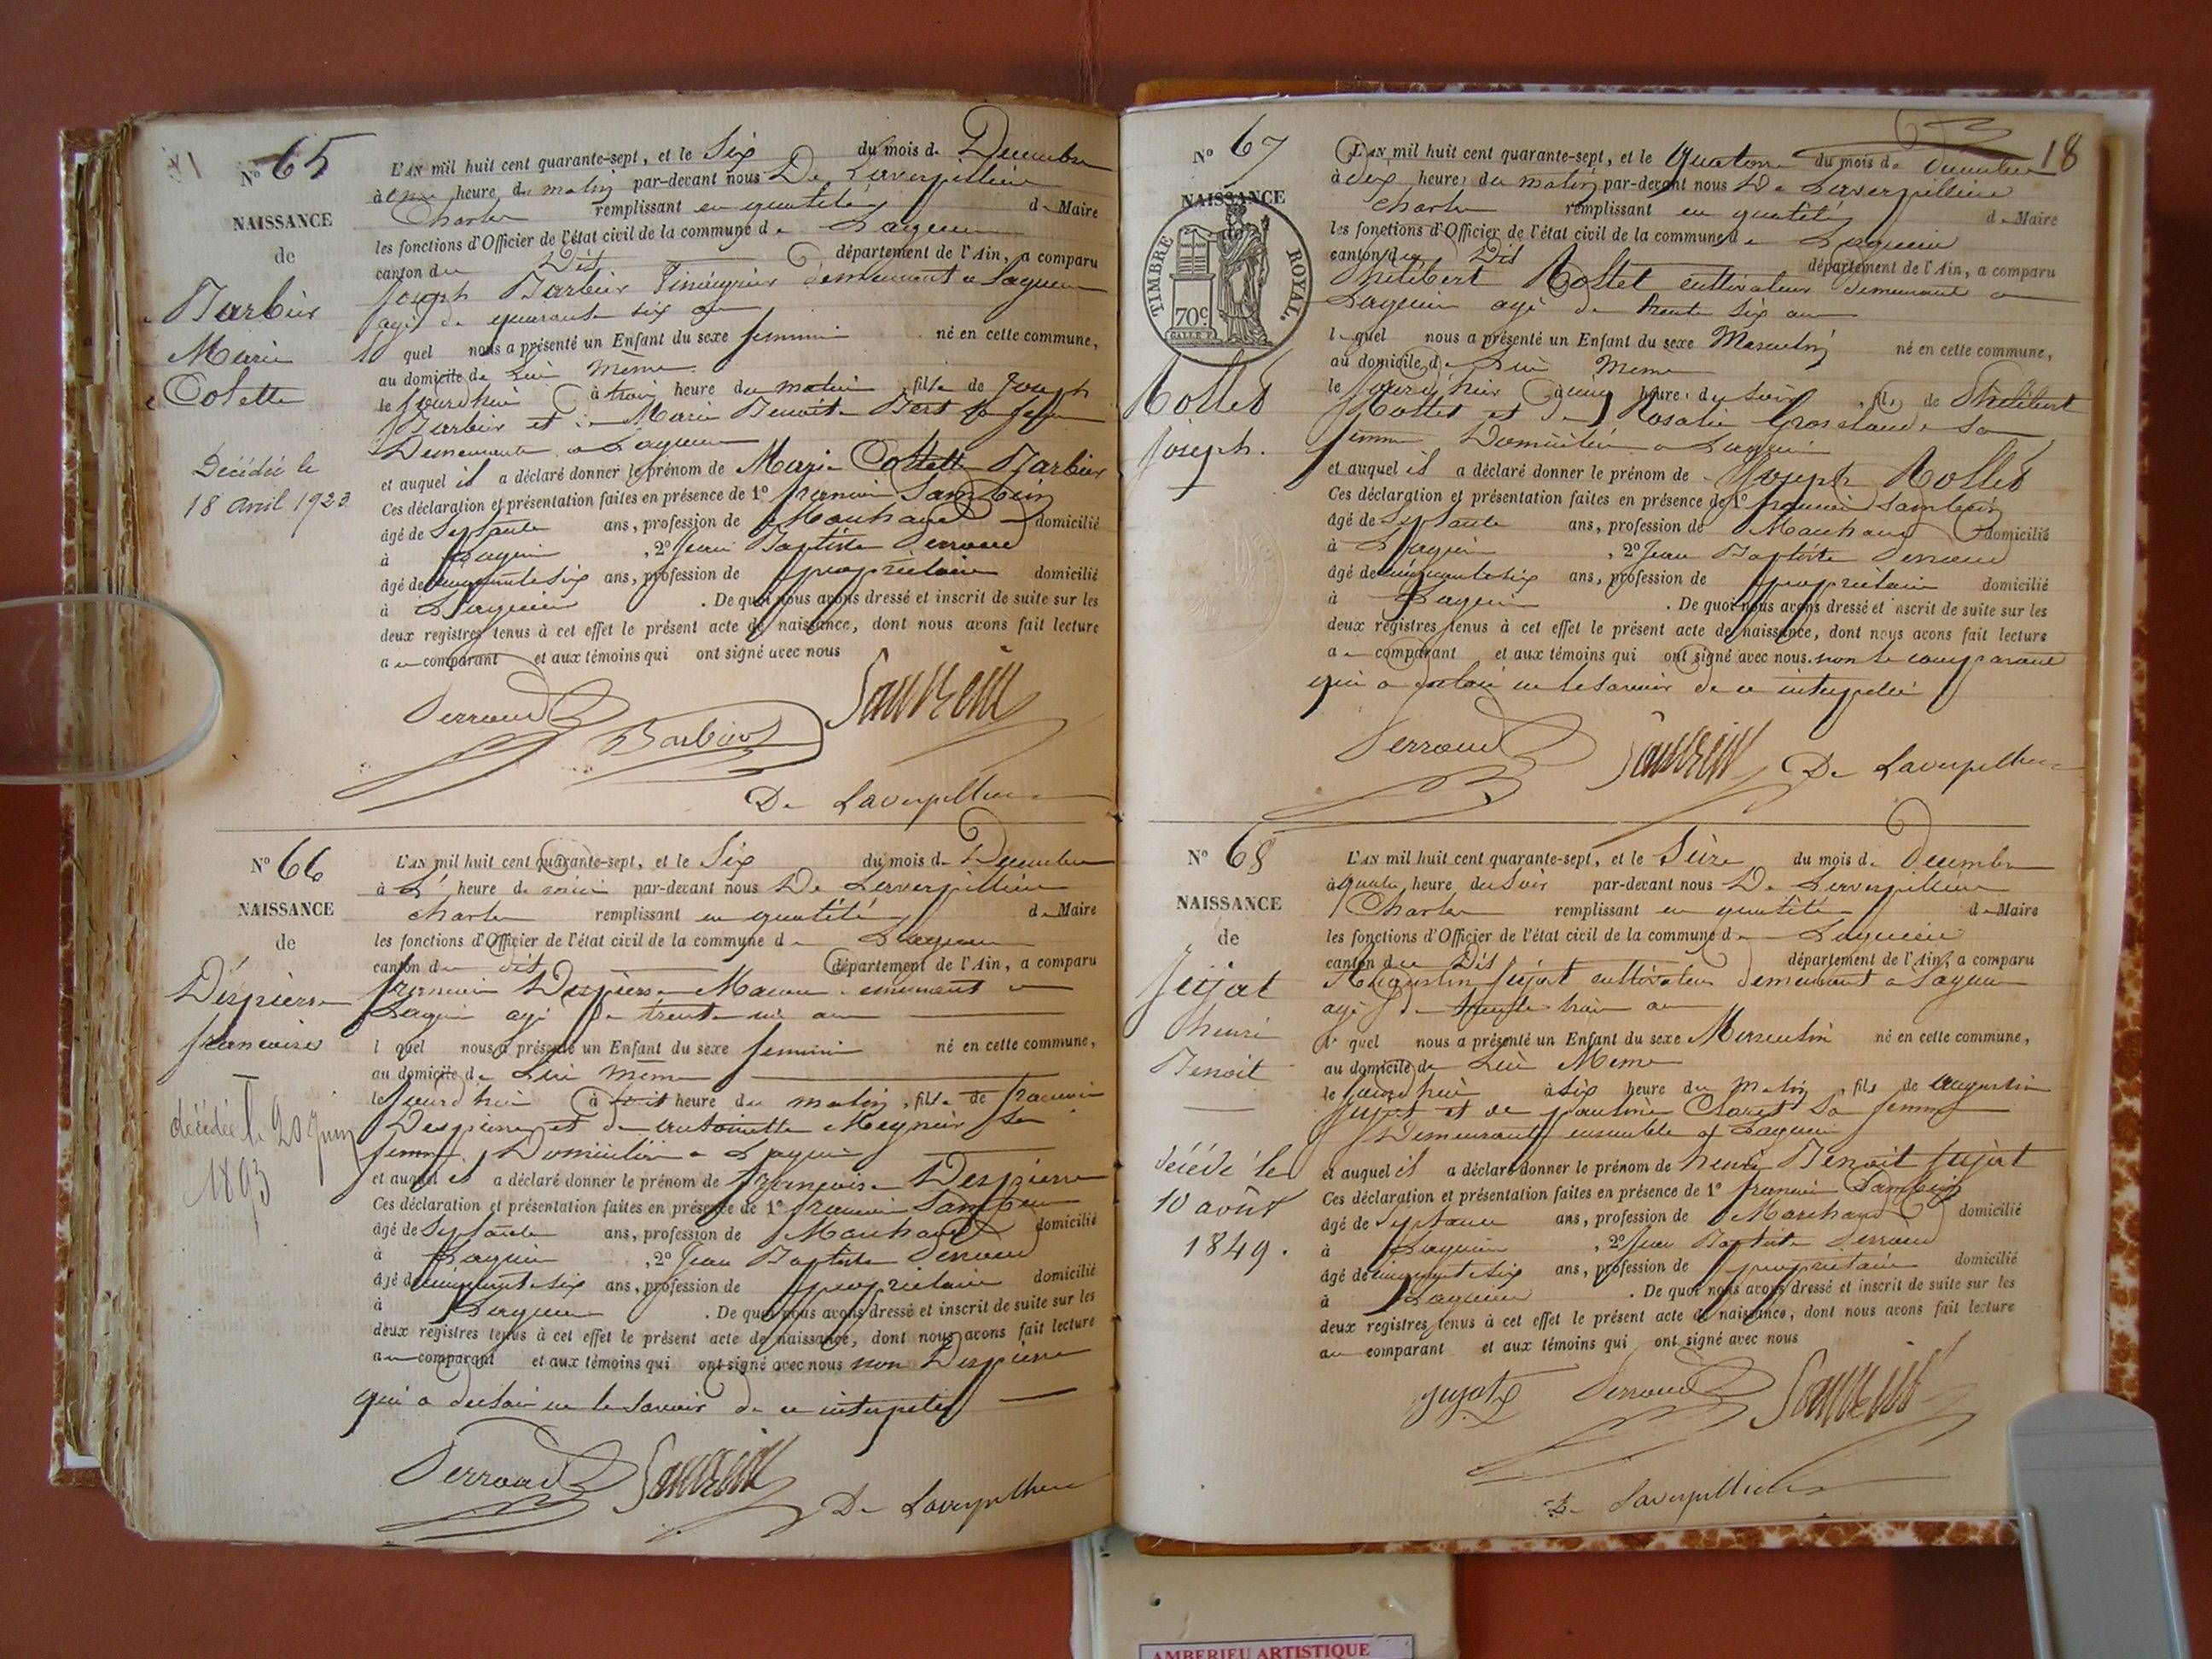 N° 65
NAISSANCE
de
Barbier
Marie
Colette
Décédée le
18 avril 1923
L'AN mil huit cent quarante-sept, et le Six du mois de Decembre
à onze heure du matin par-devant nous De Laverpillière
Charles remplissant en qualité de Maire
les fonctions d'Officier de l'état civil de la commune de Lagnieu
canton du Dit département de l'Ain, a comparu
Joseph Barbier demeurant a Lagnieu
agé de quarante six an
l quel nous a présenté un Enfant du sexe feminin né en cette commune,
au domicile de Lui même
le jourdhui à trois heure du matin, fille de Joseph
Barbier et de Marie Benoite sa femme
Demeurants a Lagnieu
et auquel il a déclaré donner le prénom de Marie Colette Barbier
Ces déclaration et présentation faites en présence de 1° francois
âgé de Septante ans, profession de Marchand domicilié
à Lagnieu, 2° Jean Baptiste Perroud
âgé de cinquantesix ans, profession de propriétaire domicilié
à Lagnieu. De quoi nous avons dressé et inscrit de suite sur les
deux registres tenus à cet effet le présent acte de naissance, dont nous avons fait lecture
au comparant et aux témoins qui ont signé avec nous
Perroud
Barbier
De Laverpilliere
N° 66
NAISSANCE
de
Déspierre
francoise
décédée le 20 juin
1893
L'AN mil huit cent quarante-sept, et le Six du mois de Decembre
à heure de par-devant nous De Laverpillière
charles remplissant en qualité de Maire
les fonctions d'Officier de l'état civil de la commune de Lagnieu
canton du dit département de l'Ain, a comparu
francois Despierre Macon demeurant a
Lagnieu agé de trente an
l quel nous a présenté un Enfant du sexe feminin né en cette commune,
au domicile de Lui même
le jourdhui à heure du matin, fille de francois
Despierre et de antoinette Meynier sa
femme Domiciliés a Lagnieu
et auquel il a déclaré donner le prénom de francoise Despierre
Ces déclaration et présentation faites en présence de 1° francois
âgé de Septante ans, profession de Marchand domicilié
à Lagnieu, 2° Jean Baptiste Perroud
âgé de cinquantesix ans, profession de propriétaire domicilié
à Lagnieu. De quoi nous avons dressé et inscrit de suite sur les
deux registres tenus à cet effet le présent acte de naissance, dont nous avons fait lecture
au comparant et aux témoins qui ont signé avec nous non Despierre
qui a declaré ne le savoir de ce interpelé
Perroud
De Laverpilliere
18
N° 67
NAISSANCE
de
TIMBRE ROYAL.
70c.
Rollet
Joseph.
L'AN mil huit cent quarante-sept, et le quatorze du mois de decembre
à dix heure du matin par-devant nous De Laverpillière
charles remplissant en qualité de Maire
les fonctions d'Officier de l'état civil de la commune de Lagnieu
canton du Dit département de l'Ain, a comparu
Philibert Rollet cultivateur demeurant a
Lagnieu agé de trente six ans
l quel nous a présenté un Enfant du sexe Masculin né en cette commune,
au domicile de Lui Meme
le jour d'hier à cinq heure du soir, fils de Philibert
Rollet et de Rosalie Grosclaude sa
femme Domiciliés a Lagnieu
et auquel il a déclaré donner le prénom de Joseph Rollet
Ces déclaration et présentation faites en présence de 1° francois
âgé de Septante ans, profession de Marchand domicilié
à Lagnieu, 2° Jean Baptiste Perroud
âgé de cinquantesix ans, profession de propriétaire domicilié
à Lagnieu. De quoi nous avons dressé et inscrit de suite sur les
deux registres tenus à cet effet le présent acte de naissance, dont nous avons fait lecture
au comparant et aux témoins qui ont signé avec nous. non le comparant
qui a declaré ne le savoir de ce interpellé
Perroud
De Laverpilliere
N° 68
NAISSANCE
de
Jujat
henri
Benoit
décédé le
10 août
1849.
L'AN mil huit cent quarante-sept, et le Seize du mois de Decembre
à quatre heure du Soir par-devant nous De Laverpillière
Charles remplissant en qualité de Maire
les fonctions d'Officier de l'état civil de la commune de Lagnieu
canton du Dit département de l'Ain, a comparu
Augustin Jujat cultivateur demeurant a Lagnieu
agé de trente trois an
l quel nous a présenté un Enfant du sexe Masculin né en cette commune,
au domicile de Lui Meme
le jourdhui à six heure du matin, fils de augustin
Jujat et de sa femme
Demeurants ensemble a Lagnieu
et auquel il a déclaré donner le prénom de henri Benoit Jujat
Ces déclaration et présentation faites en présence de 1° francois
âgé de Septante ans, profession de Marchand domicilié
à Lagnieu, 2° Jean Baptiste Perroud
âgé de cinquantesix ans, profession de propriétaire domicilié
à Lagnieu. De quoi nous avons dressé et inscrit de suite sur les
deux registres tenus à cet effet le présent acte de naissance, dont nous avons fait lecture
au comparant et aux témoins qui ont signé avec nous
Jujat Perroud
De Laverpilliere
AMBERIEU ARTISTIQUE